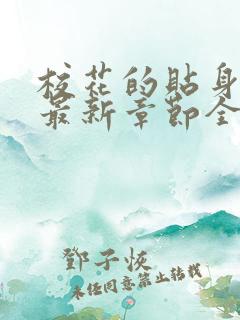 校花的貼身
最新章節全
鄧子恢
未经同意禁止转载